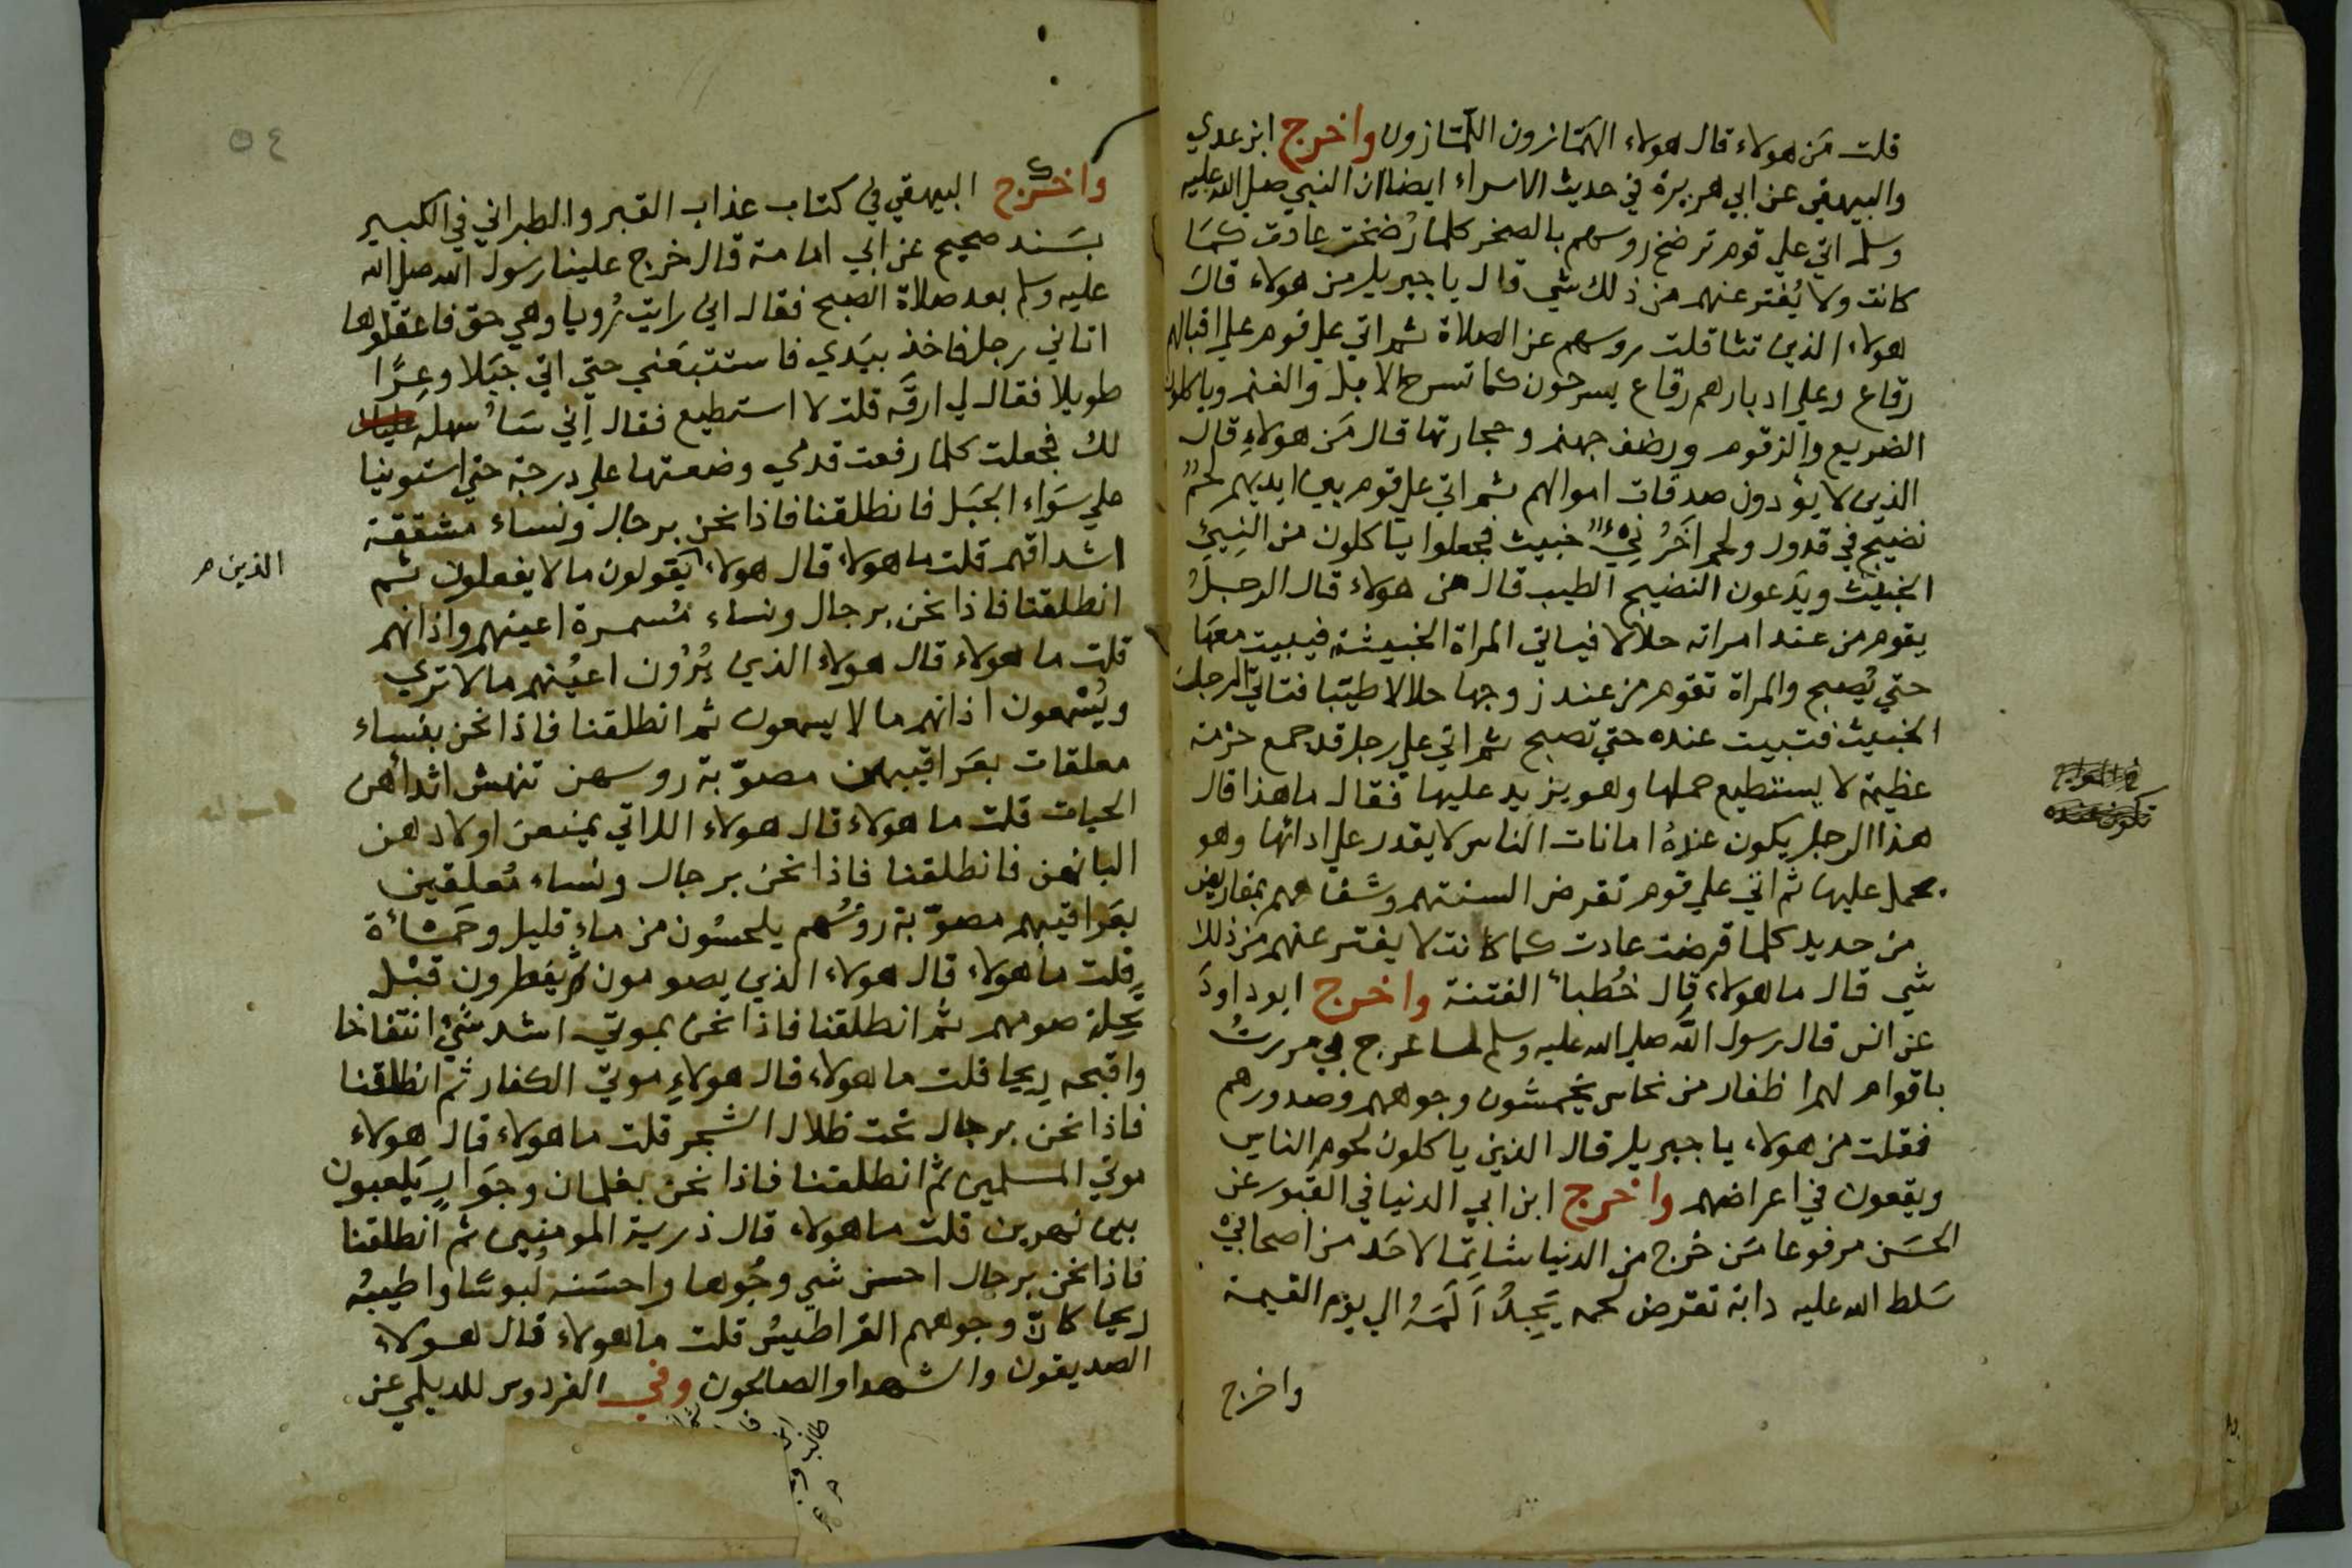 قلت مَن هولاء قال هولاء الهمّازون اللمّازون واخرج ابن عدي
والبيهقي عن ابي هريرة في حديث الاسراء ايضا ان النبي صلي الله عليه
وسلم اتي علي قوم ترضخ روسهم بالصخر كلما رُضخت عادت كمَا
كانت ولا يُفتر عنهم من ذلك شي قال يا جبريل من هولاء قال
هولاء الذين تثاقلت روسهم عن الصلاة ثم اتي علي قوم علي اقبالهم
رقاع وعلي ادبارهم رقاع يسرحون كما تسرح الابل والغنم وياكلون
الضريع والزقوم ورضف جهنم وحجارتها قال مَن هولاءِ قال
الذين لا يؤدون صدقات اموالهم ثم اتي علي قوم بين ايديهم لحمٌ
نضيج في قدور ولحم اخَرُ نِيٌ خبيث فجعلوا ياكلون من النِيئِ
الخبيث ويَدعون النضيج الطيب قال من هولاء قال الرجلُ
يقوم من عند امراته حلالا فياتي المراة الخبيثة فيبيت معهَا
حتي يُصبح والمراة تقوم من عند زوجها حلالا طيّبا فتاتي الرجلَ
الخبيث فتبيت عنده حتي تصبح ثم اتي علي رجل قد جمع حزمة
عظيمة لا يستطيع حملها وهو يزيد عليها فقال ما هذا قال
هذا الرجل يكون عندهُ امانات الناس لا يقدر علي ادائها وهو
يحمل عليها ثم اتي علي قوم تقرض السنتهم وشفاههم بمقاريض
من حديد كلما قرضت عادت كما كانت لا يفتر عنهم من ذلك
شي قال ما هولاء قال خُطبأ الفتنة واخرج ابو داودَ
عن انس قال رسول الله صلي الله عليه وسلم لما عرج بي مررتُ
باقوام لهم اظفار من نحاس يخمشون وجوههم وصدورهم
فقلت من هولاء يا جبريل قال الذين ياكلون لحوم الناس
ويقعون في اعراضهم واخرج ابن ابي الدنيا في القبور عن
الحسَن مرفوعا مَن خرج من الدنيا شاتِمًا لاحَد من اصحابيْ
سَلط الله عليه دابة تقرض لحمه يَجِدُ اَلَمَهُ الي يوم القيمة
واخرج
٥٤
واخرج البيهقي في كتاب عذاب القبر والطبراني في الكبير
بسَند صحيح عن ابي امامة قال خرج علينا رسول الله صلي الله
عليه وسلم بعد صلاة الصبح فقال اني رايت رُويا وهي حق فاعقلوها
اتاني رجل فاخذ بيَدي فاستتبعَني حتي اتي جبَلا وعِرًا
طويلا فقال لي ارقَه قلت لا استطيع فقال اِنّي سَاُسهله
لك فجعلت كلما رفعت قدمي وضعتها علي درجة حتي استوينا
علي سَواء الجبَل فانطلقنا فاذا نحن برجال ونساء مشققة
اشداقهم قلت ما هولاء قال هولاء يَقولون ما لا يفعلون ثم
الذين م
انطلقنا فاذا نحن برجال ونساء مُسمرة اعينهم واذانهم
قلت ما هولاء قال هولاء الذين يُرُون اعيُنهم ما لا تري
ويُسْمعون اذانهم ما لا يسمعون ثم انطلقنا فاذا نحن بنساء
معلقات بعَراقيبهن مصوّبة روسهن تنهش اثدأهن
الحيات قلت ما هولاء قال هولاء اللاتي يمنعن اولادهن
البانهن فانطلقنا فاذا نحن برجال ونساء مُعلقين
بعَراقيبهم مصوّبة رؤسُهم يلحسُون من ماءٍ قليل وحَمَأة
قلت ما هولاء قال هولاء الذين يصومون ثم يفطرون قبْل
تَحِلة صومهم ثم انطلقنا فاذا نحن بموتي اشد شيْ انتفاخا
واقبحه ريحا قلت ما هولاء قال هولاءِ موتي الكفار ثم انطلقنا
فاذا نحن برجال تحت ظلال الشجر قلت ما هولاء قال هولاء
موتي المسلمين ثم انطلقنا فاذا نحن بغلمان وجوَارٍ يَلعبون
بين نهرين قلت ما هولاء قال ذرية المومنين ثم انطلقنا
فاذا نحن برجال احسن شي وجُوها واحسَنه لبوسًا واطيبُه
ريحا كانّ وجوههم القراطيسُ قلت ما هولاء قال هولاء
الصديقون والشهدا والصالحون وفي الفردوس للديلمي عن